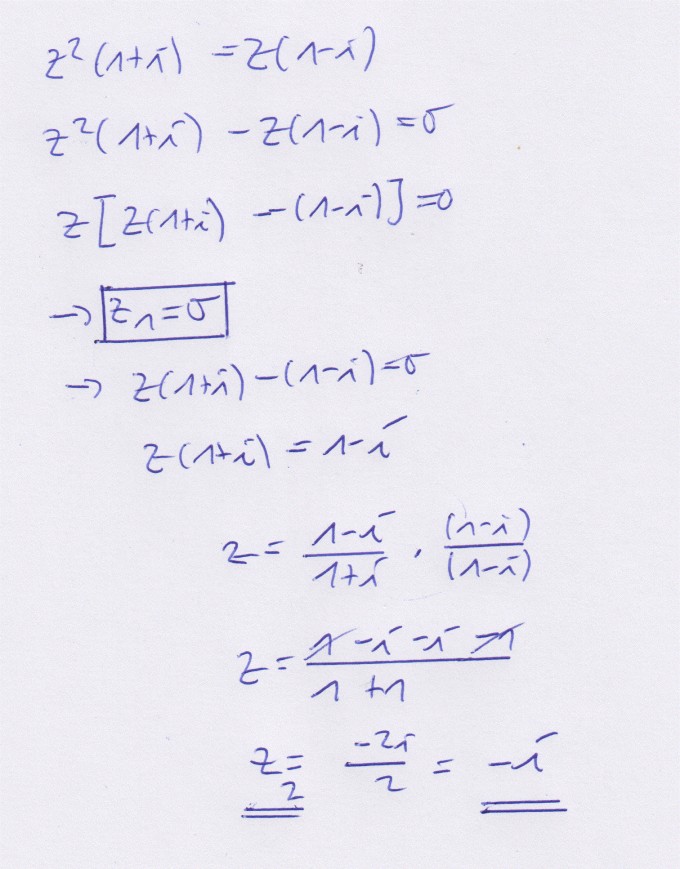 z²(1+i) = z(1-i)
z²(1+i) - z(1-i) = 0
z[z(1+i) - (1-i)] = 0
→ z₁ = 0
→ z(1+i) - (1-i) = 0
z(1+i) = 1-i
z = \frac{1-i}{1+i} · \frac{(1-i)}{(1-i)}
z = \frac{1-i-i-1}{1+1}
z₂ = \frac{-2i}{2} = -i